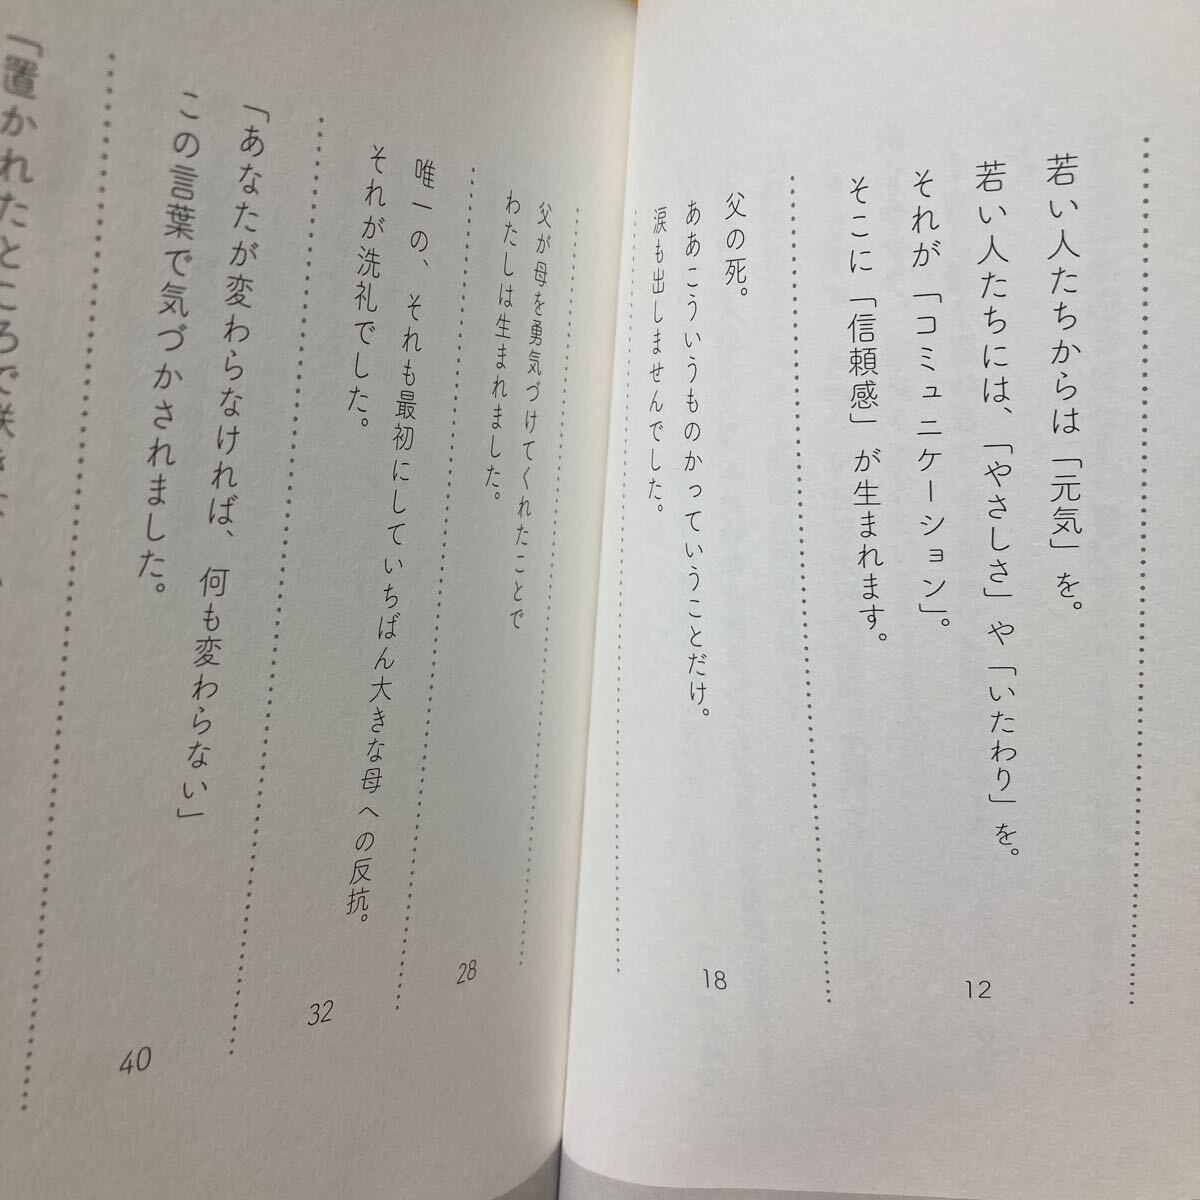 若い人たちからは「元気」を。
若い人たちには、「やさしさ」や「いたわり」を。
それが「コミュニケーション」。
そこに「信頼感」が生まれます。
12
父の死。
ああこういうものかっていうことだけ。
涙も出しませんでした。
18
父が母を勇気づけてくれたことで
わたしは生まれました。
28
唯一の、それも最初にしていちばん大きな母への反抗。
それが洗礼でした。
32
「あなたが変わらなければ、何も変わらない」
この言葉で気づかされました。
40
「置かれたところで咲き